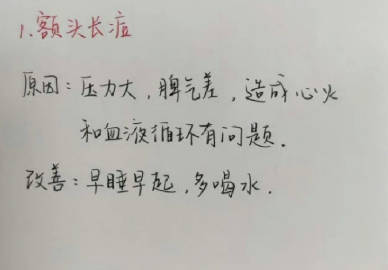 1.额头长痘
原因:压力大,脾气差,造成心火
和血液循环有问题.
改善:早睡早起,多喝水.